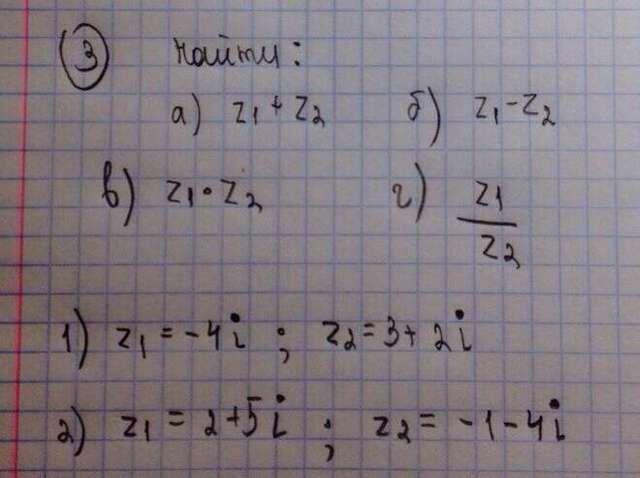 3 Найти:
а) z1 + z2 б) z1 - z2
в) z1 · z2 г) z1/z2
1) z1 = -4i ; z2 = 3 + 2i
2) z1 = 2 + 5i ; z2 = -1 - 4i